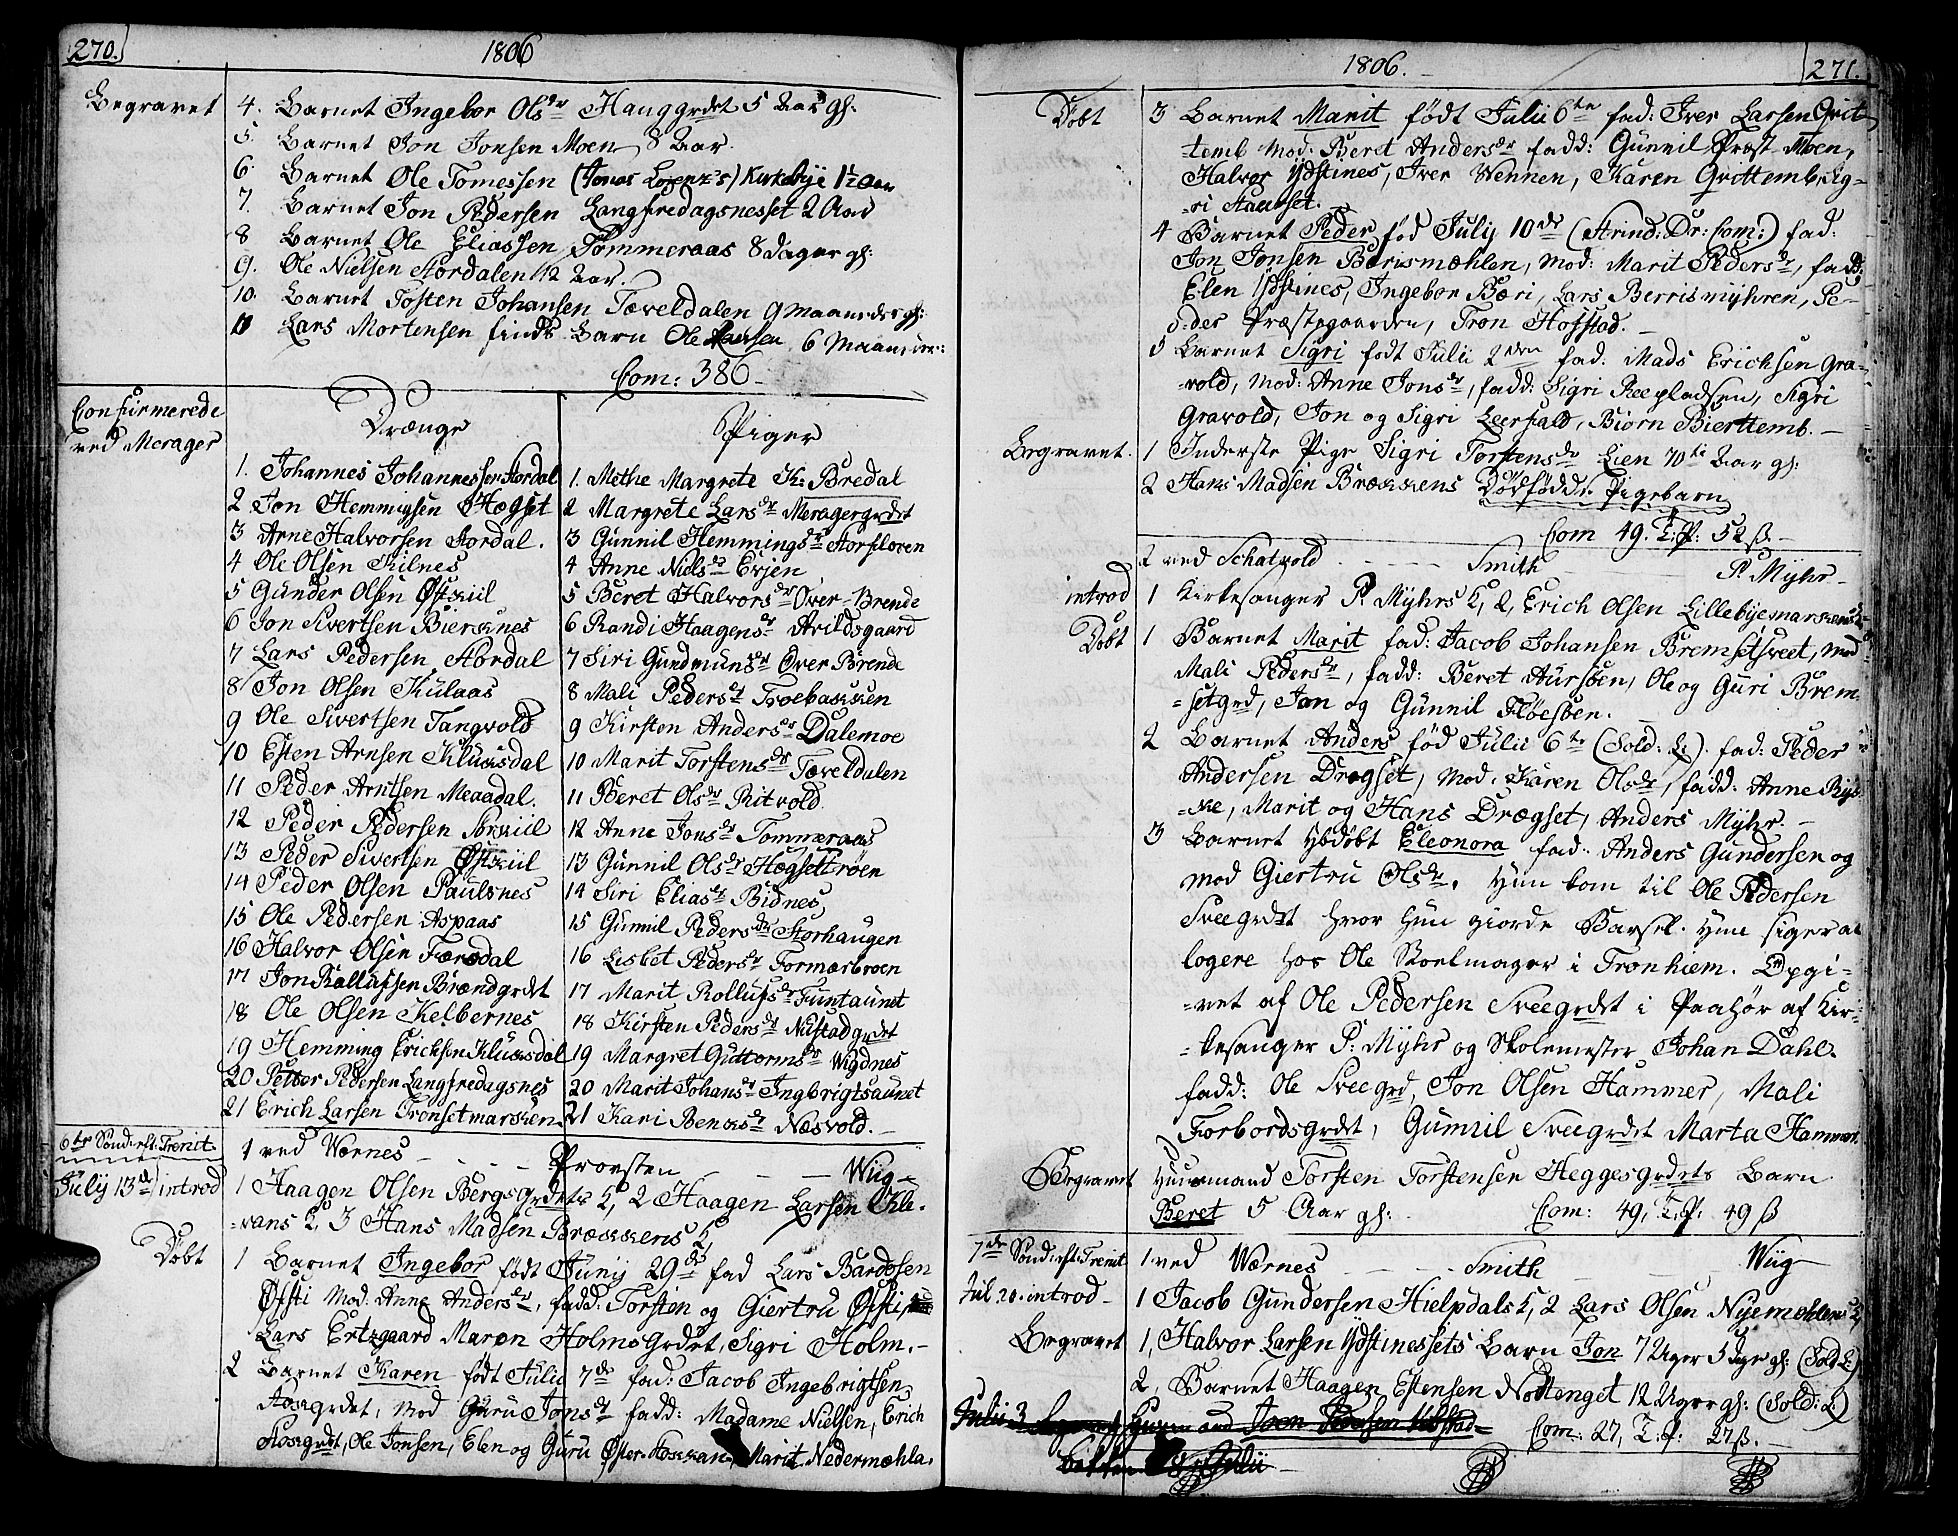 270.
1806
Begravet
4. Barnet Ingebor Olsdr Hauggrdet 5 Aar gl:
5. Barnet Jon Jonsen Moen 8 Aar.
6. Barnet Ole Tomessen (Jonas Lorenz's) Kirkebye 1½ Aar
7. Barnet Jon Pedersen Langfredagsnesset 2 Aar
8 Barnet Ole Eliassen Tømmeraas 8 Dager gl:
9. Ole Nielsen Stordalen 12 Aar.
10. Barnet Tosten Johansen Tæveldalen 9 Maaneder gl:
11 Lars Mortensen Barn Ole Larsen 6 Maaneder:
Com: 386 -
Confirmerede
ved Merager
Drænge
1. Johannes Johannessen Stordal
2 Jon Hemmigsen Hægset
3 Arne Halvorsen Stordal.
4 Ole Olsen Kilnes
5 Gunder Olsen Østkiil
6 Jon Sivertsen Bierknes
7 Lars Pedersen Stordal
8 Jon Olsen Kulaas
9 Ole Sivertsen Tangvold
10 Esten Arnsen Kluksdal
11 Peder Arntsen Meaadal.
12 Peder Pedersen Sørkiil
13 Peder Sivertsen Østkiil
14 Peder Olsen Paulsnes
15 Ole Pedersen Aspaas
16 Halvor Olsen Færsdal
17 Jon Rollufsen Brændgrdet
18 Ole Olsen Kelbernes
19 Hemming Erichsen Kluksdal
20 Petter Pedersen Langfredagsnes
21 Erich Larsen Trønsetmarken
Piger
1. Methe Margrete K: Bredal
2 Margrete Larsdr Meragergrdet
3 Gunnil Hemmingsdr Storfloren
4 Anne Nielsdr Evjen
5 Beret Halvorsdr Over-Brende
6 Randi Haagensdr Arildsgaard
7 Siri Gundmunsdr Over Brende
8 Mali Pedersdr Troebakken
9 Kirsten Andersdr Dalemoe
10 Marit Torstensdr Tæveldalen
11 Beret Olsdr Ritvold.
12 Anne Jonsdr Tommeraas
13 Gunnil Olsdr Hægsetrøen
14 Siri Eliasdr Bidnes
15 Gunnil Pedersdr Storhaugen
16 Lisbet Pedersdr Formærbroen
17 Marit Rollufsdr Funtaunet
18 Kirsten Pedersdr Nustadgrdet
19 Margret Guttormsdr Wigdnes
20 Marit Johansdr Ingbrigtsaunet
21 Kari Benksdr Næsvold.
6te Sønd: eft: Trenit.
1 ved Wærnes - - - Provsten - - Wiig -
July 13d introd
1 Haagen Olsen Bergsgrdets K, 2 Haagen Larsen Kle-
-vans K, 3 Hans Madsen Brækkens K,
Døbt
1 Barnet Ingebor født Junij 29de fad Lars Bardosen
Øfsti Mod: Anne Andersdr, fadd: Torsten og Giertru Øfsti,
Lars Ertzgaard Maren Holmsgrdet, Sigri Holm. -
2 Barnet Karen født Julii 7de fad: Jacob Ingebrigtsen
Aasegrdet, Mod Guru Jonsdr fadd: Madame Nielsen, Erich
Hosegrdet, Ole Jonsen, Elen og Guru Øster Kosskan, Marit Nedermæhla.
1806. -
271.
Døbt
3 Barnet Marit født Julii 6te fad: Iver Larsen Grit
-temb Mod: Beret Andersdr fadd: Gunnil Præst-Moen,
Halvor Ydstines, Iver Wennen, Karen Grittemb, Sig-
-ri
4 Barnet Peder fød July 10de (Strind: Dr: Com:) fad:
Jon Jonsen Borismæhlen, Mod: Marit Pedersdr, fadd:
Elen Ydstines, Ingebor Bæri, Lars Berrismyhren, Pe-
d:der Præstegaarden, Tron Hofstad. -
5 Barnet Sigri født Julii 2den fad: Mads Erichsen Gra-
-vold, Mod: Anne Jonsdr, fadd: Sigri Reepladsen, Sigri
Gravold, Jon og Sigri Leerfald, Biørn Bierttemb. -
Begravet.
1 Inderste Pige Sigri Torstensdr Lien 70ti Aar gl:
2 Hans Madsen Brækkens Dødfødde Pigebarn
Com 49. T: P: 52 ß. -
2 ved Schatvold - - - Smith - - P. Myhr -
introd
1 Kirkesanger P. Myhrs K, 2, Erich Olsen Lillebyemarkens K
Døbt
1 Barnet Marit fad: Jacob Johansen Bremsetsveet, Mod
Mali Pedersdr, fadd: Beret Aursøen, Ole og Guri Brem
-setgrd, Jon og Gunnil Fløesøen. -
2 Barnet Anders fød Julii 6te (Sold: L:) fad: Peder
Andersen Drogset, Mod: Karen Olsdr, fadd: Anne Ryk-
-ke, Marit og Hans Drægset, Anders Myhr. -
3 Barnet Udøbt Eleonora fad: Anders Gundersen og
Mod Giertru Olsdr. Hun kom til Ole Pedersen
Sveegrdet hvor hun giorde Barsel. Hun siger at
logere hos Ole Stoelmager i Tronhiem. Opgi-
-vet af Ole Pedersen Sveegrdet i Paahør af Kir-
-kesanger P. Myhr og Skolemester Johan Dahl.
fadd: Ole Sveegrd, Jon Olsen Hammer, Mali
Forbordsgrdet, Gunnil Sveegrdet Marta Hammer.
Begravet
Huusmand Torsten Torstensen Heggesgrdets Barn
Beret 5 Aar gl: Com: 49, T: P: 49 ß
7de Sønd: eft: Trenit
1 ved Wærnes - - - Smith - - Wiig -
Jul 20. introd -
1 Jacob Gundersen Hielpdals K, 2 Lars Olsen Nyemøhlens K,
Begravet
1, Halvor Larsen Ydstinessets Barn Jon 7 Uger 3 Dage gl: (Sold L:)
2, Barnet Haagen Estensen Nottenget 12 Uger gl: (Sold: L:)
Com: 27, T: P: 27 ß. -
Julii 3
Julii -